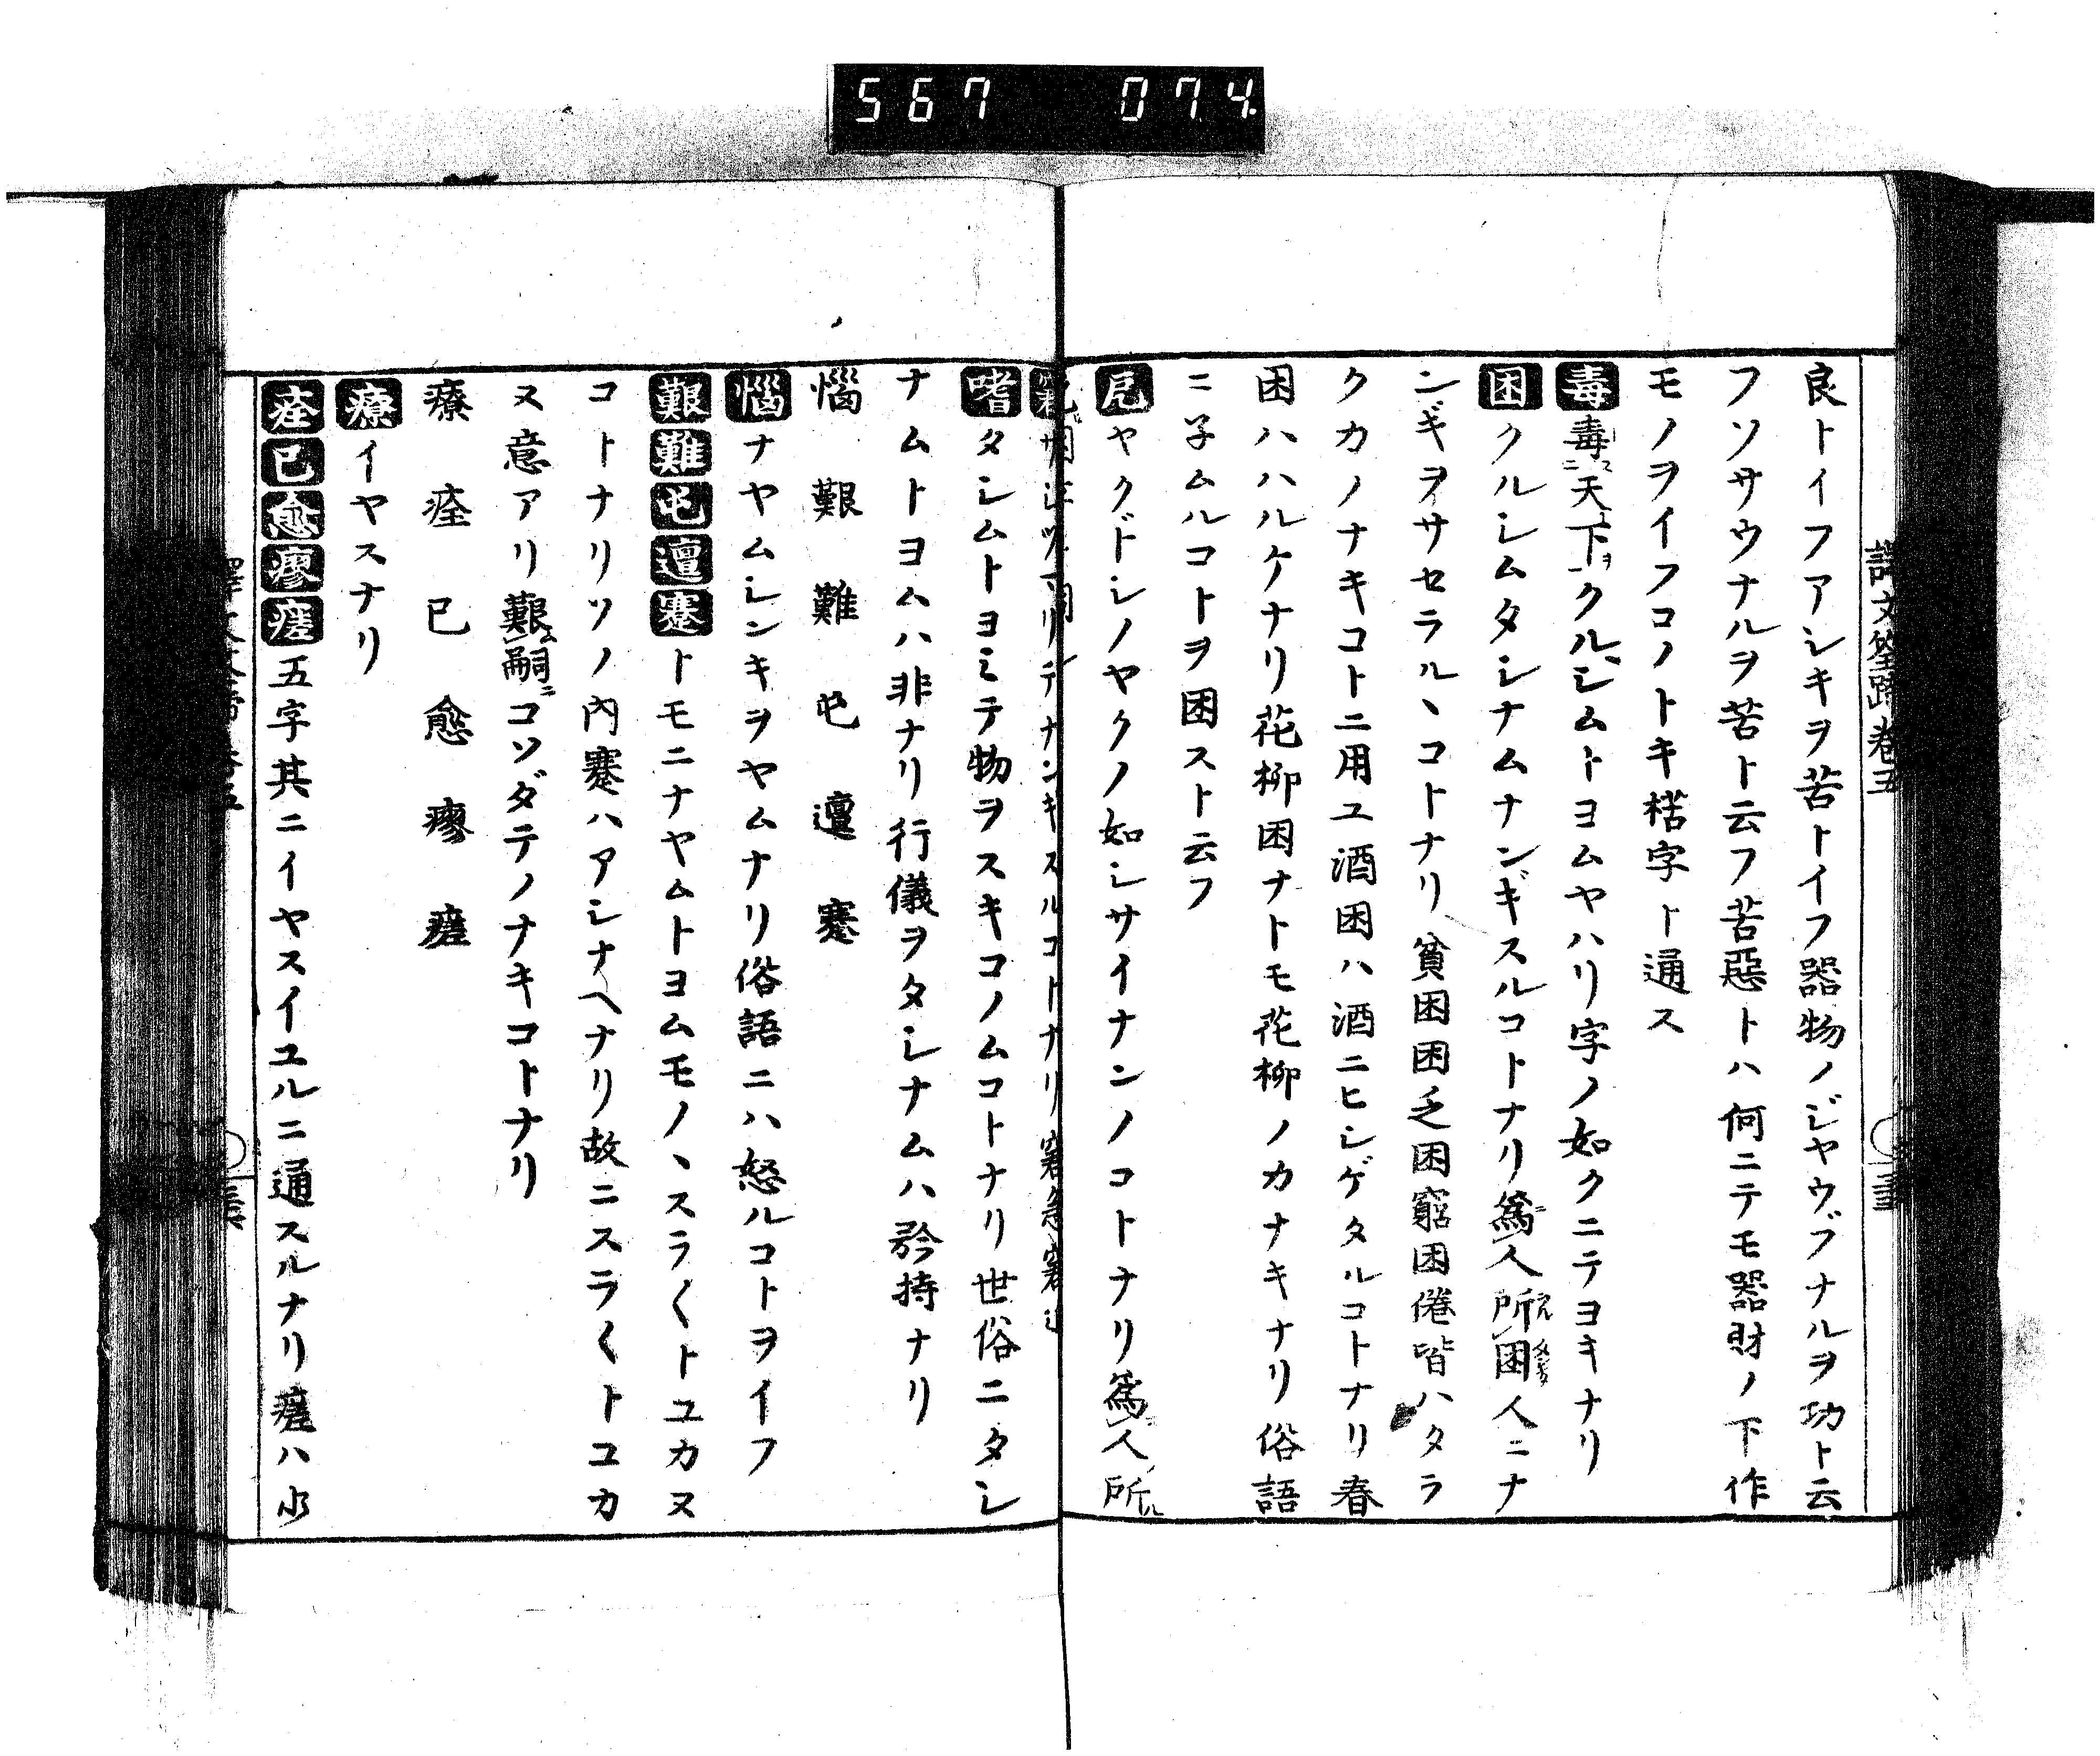 567 074
譯文筌蹄卷五
良トイフアシキヲ苦トイフ器物ノジヤウブナルヲ功ト云
フソサウナルヲ苦ト云フ苦惡トハ何ニテモ器財ノ下作
モノヲイフコノトキ楛字ト通ス
毒毒ス二天下ヲ一クルシムトヨムヤハリ字ノ如クニテヨキナリ
困クルシムタシナムナンギスルコトナリ爲ニ人所困人ニナ
ンギヲサセラルヽコトナリ貧困困乏困窮困倦皆ハタラ
クカノナキコトニ用ユ酒困ハ酒ニヒシゲタルコトナリ春
困ハハルケナリ花柳困ナトモ花柳ノカナキナリ俗語
ニ子ムルコトヲ困スト云フ
戹ヤクドシノヤクノ如シサイナンノコトナリ爲人所ル
窘サシツマリテナンキスルコトナリ窘急窘
嗜タシムトヨミテ物ヲスキコノムコトナリ世俗ニタシ
ナムトヨムハ非ナリ行儀ヲタシナムハ矜持ナリ
惱艱難屯邅蹇
惱ナヤムシンキヲヤムナリ俗語ニハ怒ルコトヲイフ
艱難屯邅蹇トモニナヤムトヨムモノヽスラ〱トユカヌ
コトナリソノ內蹇ハアシナヘナリ故ニスラ〱トユカ
ヌ意アリ艱ム嗣ニコソダテノナキコトナリ
療痊已愈瘳瘥
療イヤスナリ
痊已愈瘳瘥五字其ニイヤスイユルニ通スルナリ瘥ハ少